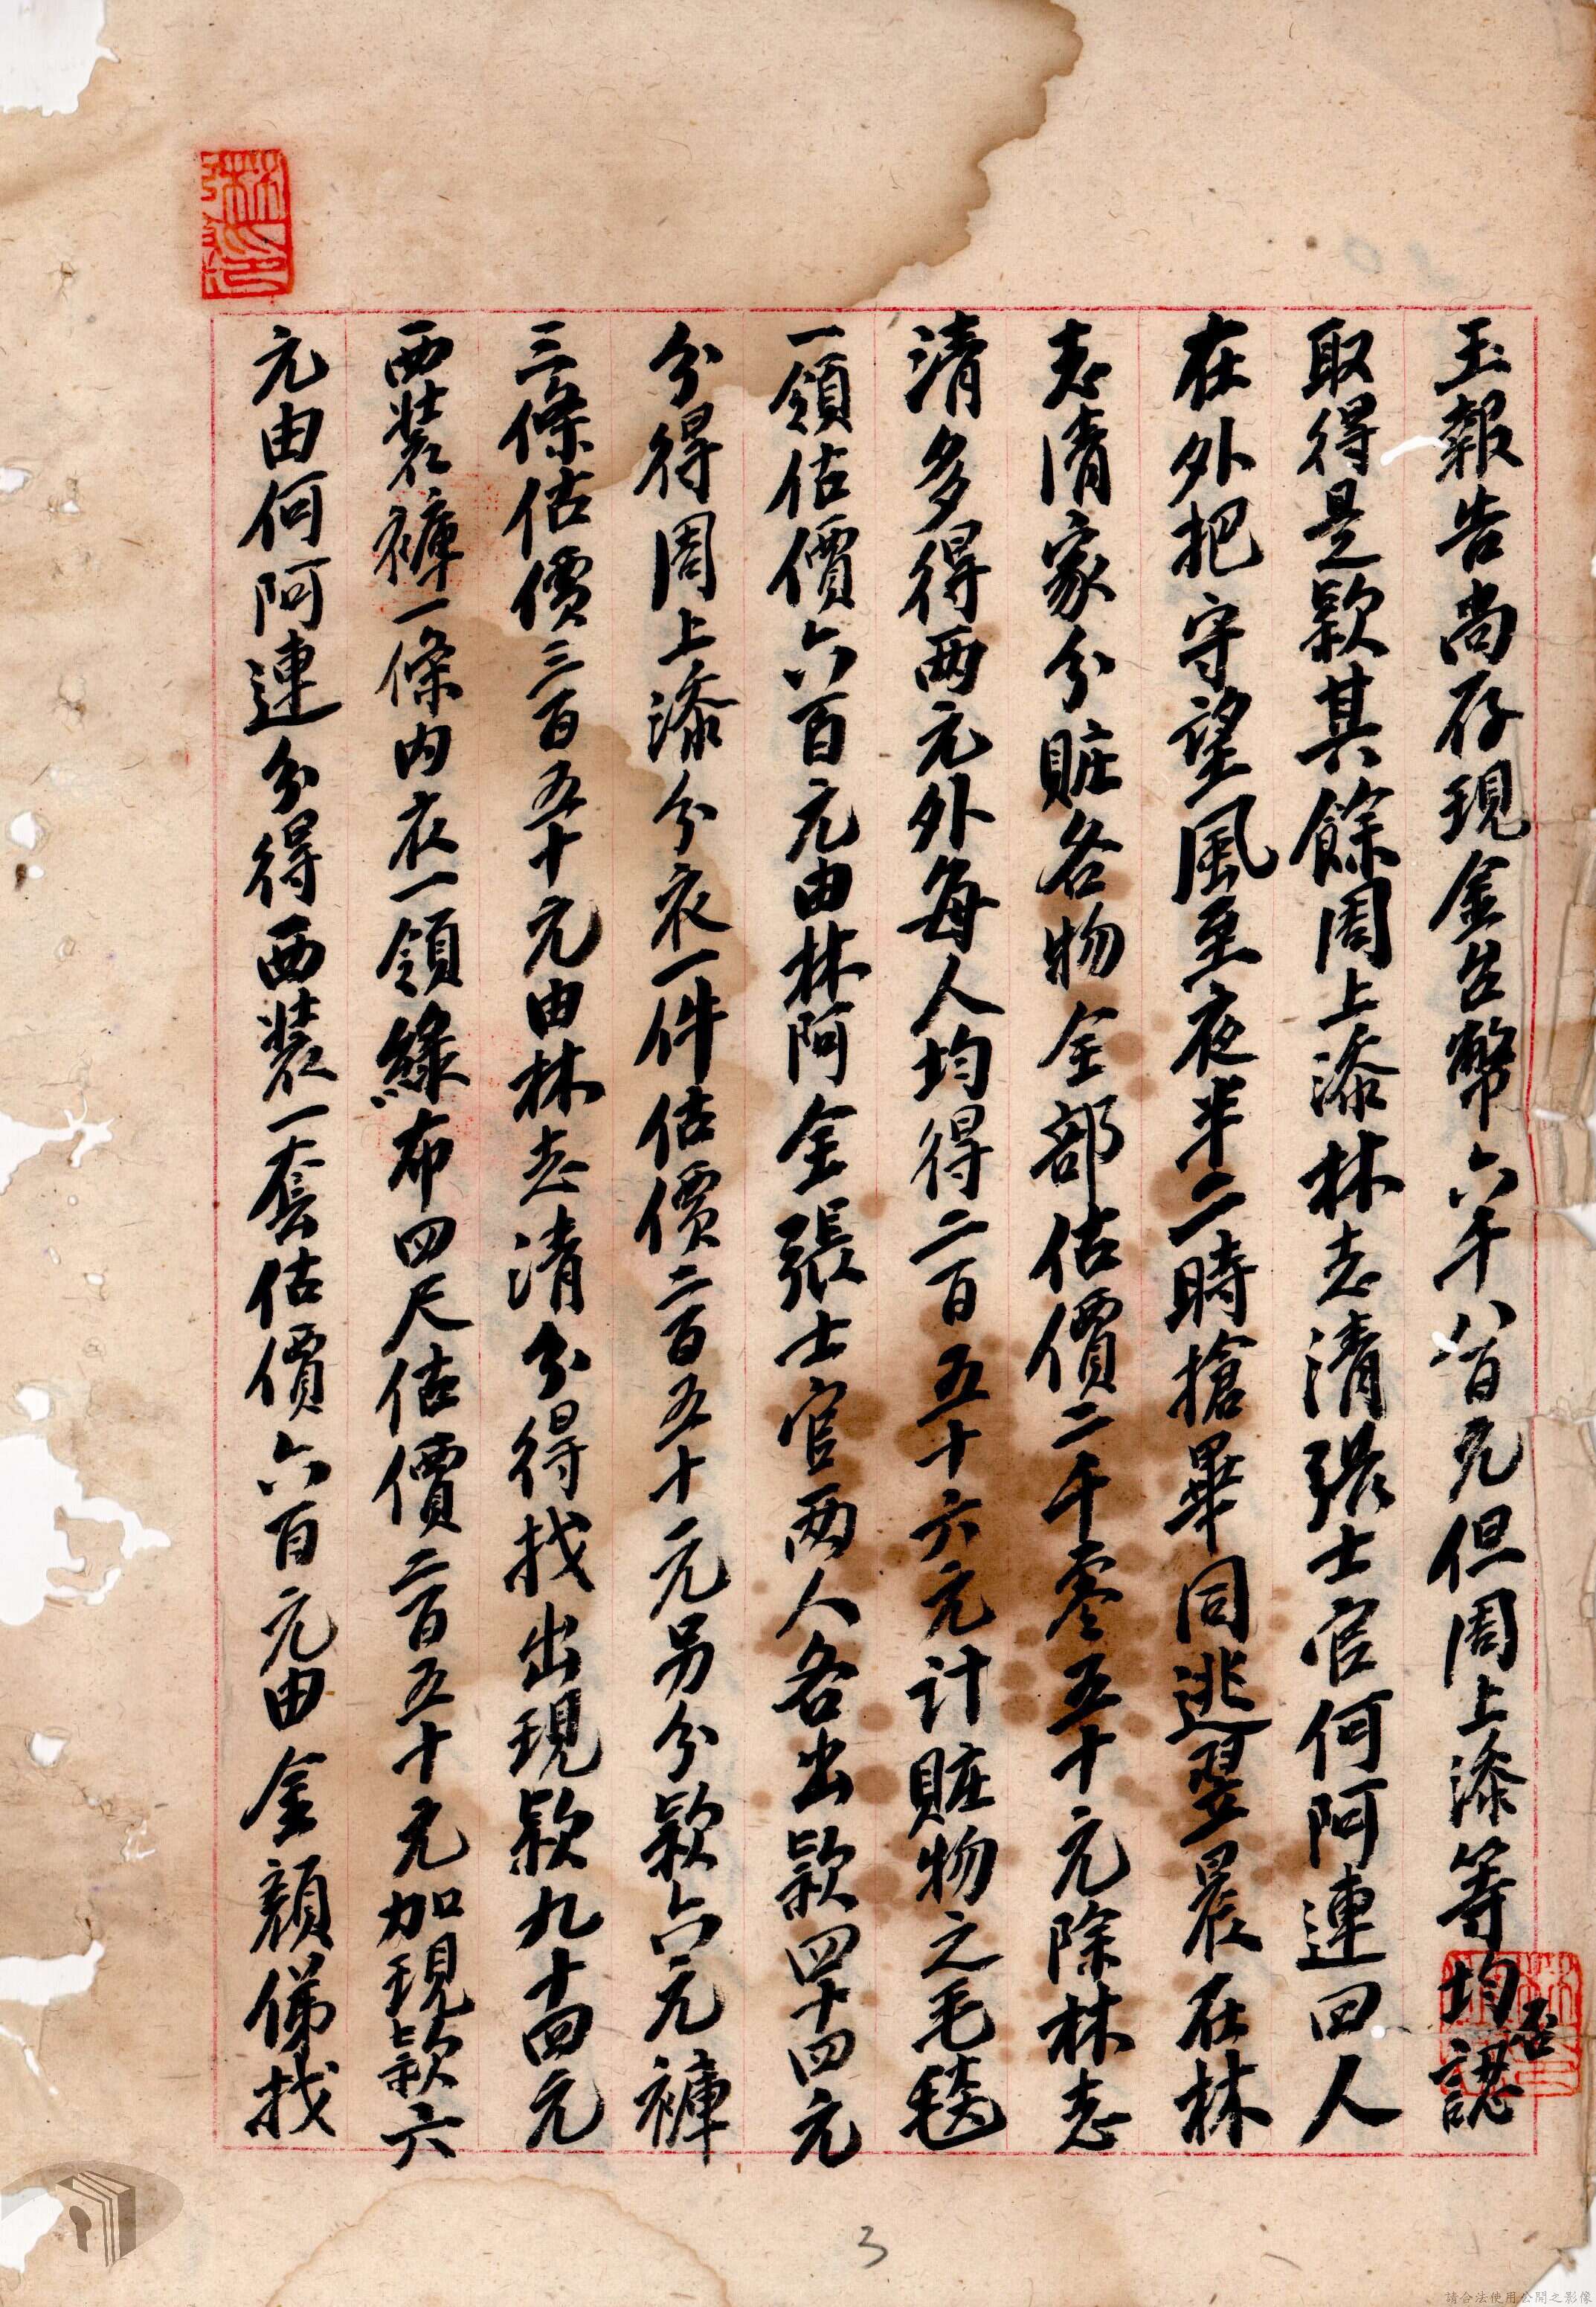 玉報告尚存現金台幣六千八百元但周上添等均否認
取得是款其餘周上添林志清張士官何阿連四人
在外把守望風至夜半二時搶畢同逃翌晨在林
志清家分賍各物全部估價二千零五十元除林志
清多得兩元外每人均得二百五十六元計賍物之毛毯
一領估價六百元由林阿全張士官兩人各出款四十四元
分得周上添分衣一件估價二百五十元另分款六元褲
三條估價三百五十元由林志清分得找出現款九十四元
西裝褲一條內衣一領綠布四尺估價二百五十元加現款六
元由何阿連分得西裝一套估價六百元由金顏俤找
3
請合法使用公開之影像